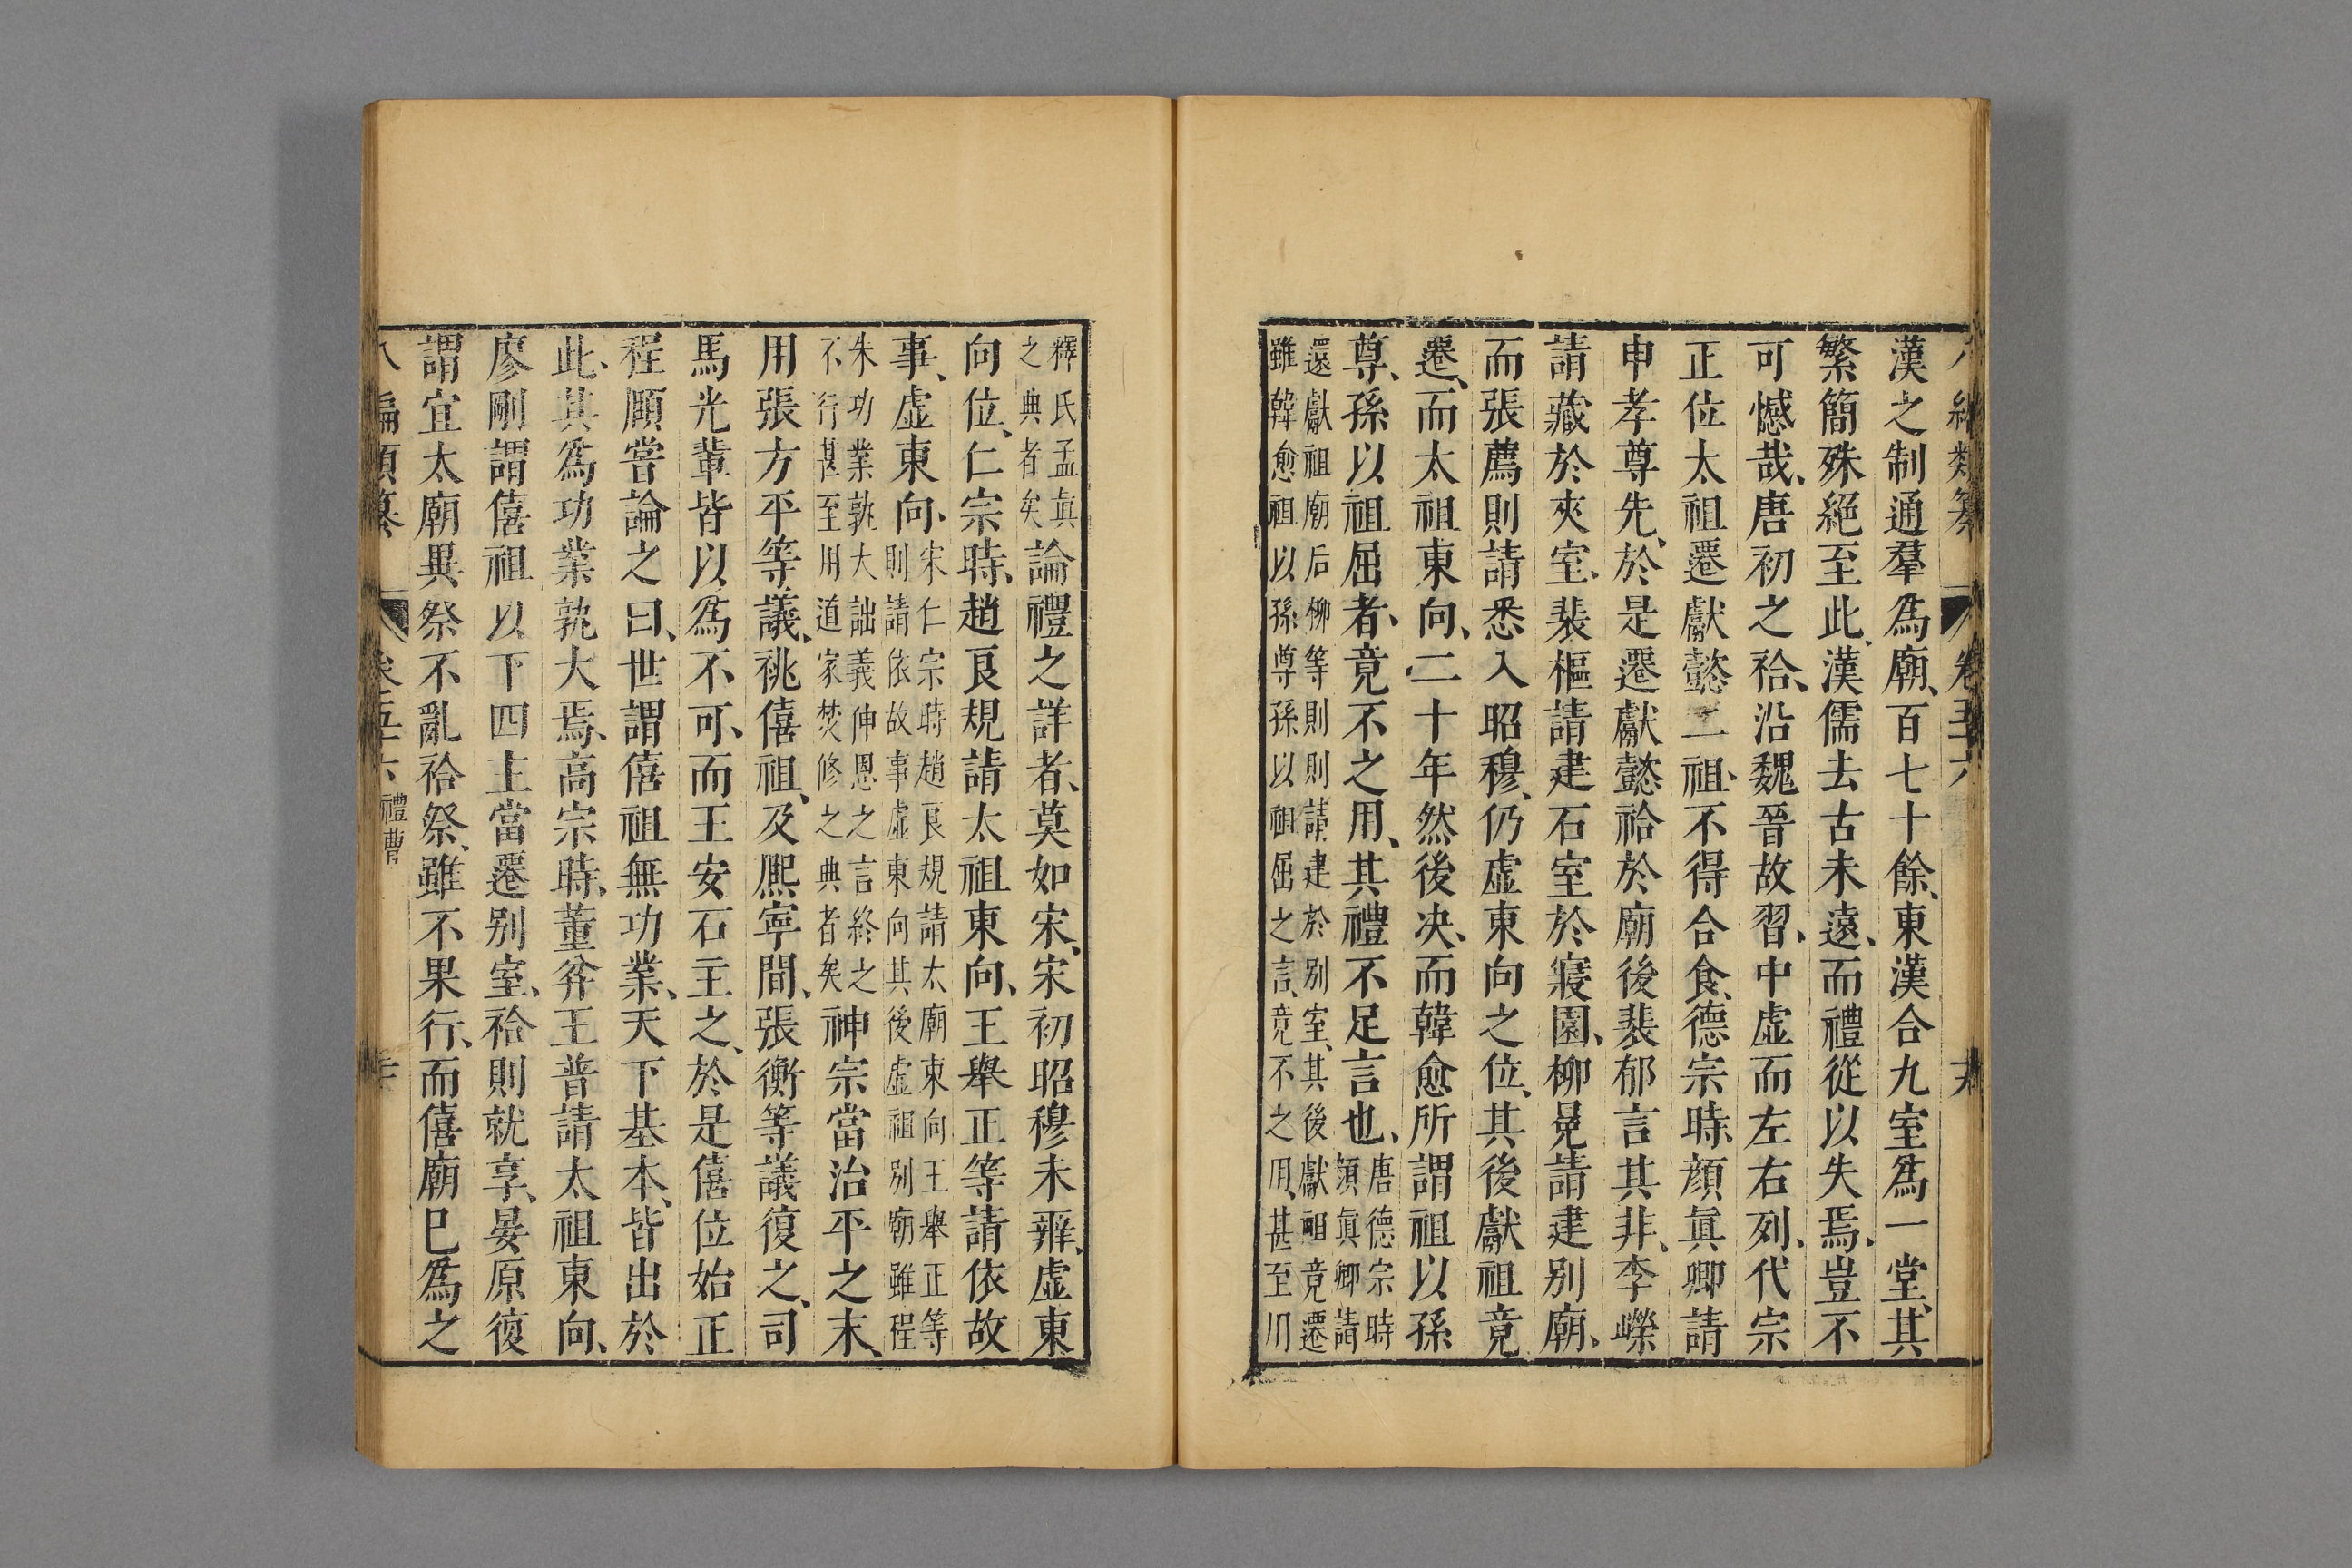 漢之制通羣爲廟、百七十餘、東漢合九室爲一堂、其
繁簡殊絕至此、漢儒去古未遠、而禮從以失焉、豈不
可憾哉、唐初之祫、沿魏晉故習、中虛而左右列、代宗
正位太祖遷獻懿二祖、不得合食、德宗時、顏眞卿請
申孝尊先、於是遷獻懿祫於廟後裴郁言其非、李嶸
請藏於夾室、裴樞請建石室於寢園、柳冕請建別廟、
而張薦則請悉入昭穆、仍虛東向之位、其後獻祖竟
遷、而太祖東向、二十年然後決、而韓愈所謂祖以孫
尊、孫以祖屈者、竟不之用、其禮不足言也、唐德宗時顏眞卿請
還獻祖廟后柳等則則請建於別室、其後獻祖竟遷
雖韓愈祖以孫尊孫以祖屈之言、竟不之用、甚至用
釋氏孟眞之典者矣論禮之詳者、莫如宋、宋初昭穆未辨、虛東
向位、仁宗時、趙良規請太祖東向、王舉正等請依故
事、虛東向、宋仁宗時趙良規請太廟東向王舉正等則請依故事虛東向其後虛祖別廟雖程
朱功業孰大詘義伸恩之言終之不行甚至用道家焚修之典者矣神宗當治平之末、
用張方平等議、祧僖祖、及熈寧間、張衡等議復之、司
馬光輩皆以爲不可、而王安石主之、於是僖位始正
程頤嘗論之曰、世謂僖祖無功業、天下基本、皆出於
此、其爲功業孰大焉、高宗時、董弅王普請太祖東向、
廖剛謂僖祖以下四主當遷別室、祫則就享、晏原復
謂宜太廟異祭不亂祫祭、雖不果行、而僖廟巳爲之
禮曹